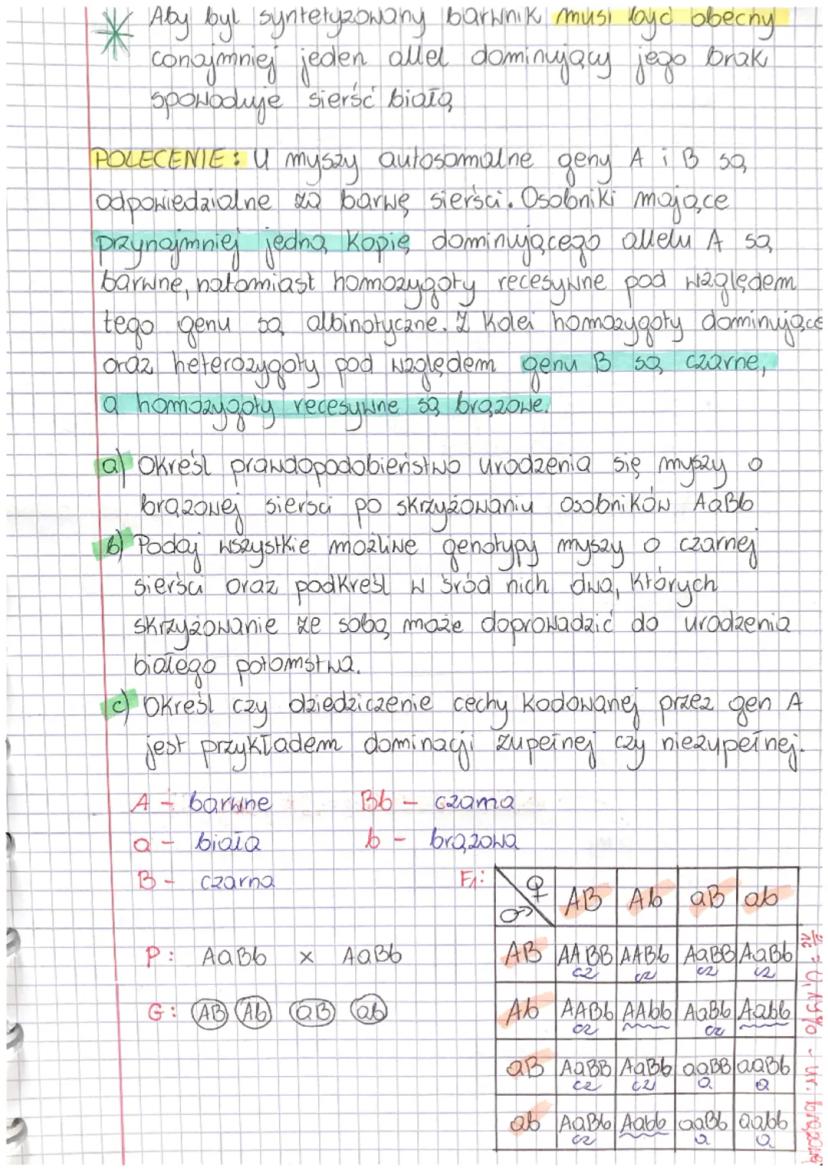 * Aby był syntetyzowany barwnik musi być obecny
conajmniej jeden allel dominujący jego brak
spowoduje sierść białą
POLECENIE: U myszy autosomalne geny A i B są
odpowiedzialne za barwę sierści. Osobniki mające
przynajmniej jedną kopię dominującego allelu A są
barwne, natomiast homozygoty recesywne pod względem
tego genu są albinotyczne. Z kolei homozygoty dominujące
oraz heterozygoty pod względem genu B są czarne,
a homozygoty recesywne są brązowe.
a) Określ prawdopodobieństwo urodzenia się myszy o
brązowej siersci po skrzyżowaniu osobników AaBb
b) Podaj wszystkie możliwe genotypy myszy o czarnej
sierści oraz podkreśl w śród nich dwa, których
skrzyżowanie ze sobą może doprowadzić do urodzenia
białego potomstwa.
c) Określ czy dziedziczenie cechy kodowanej przez gen A
jest przykładem dominacji zupełnej czy niezupełnej.
A - barwne Bb - czarna
a - biała b - brązowa
B - czarna F1:
♀ ♂ AB Ab aB ab
P: AaBb x AaBb
G: AB Ab aB ab
AB AABB AABb AaBB AaBb
cz cz cz cz
Ab AABb AAbb AaBb Aabb
cz cz
aB AaBB AaBb aaBB aaBb
cz cz a a
ab AaBb Aabb aaBb aabb
cz a a
ur. brązowa